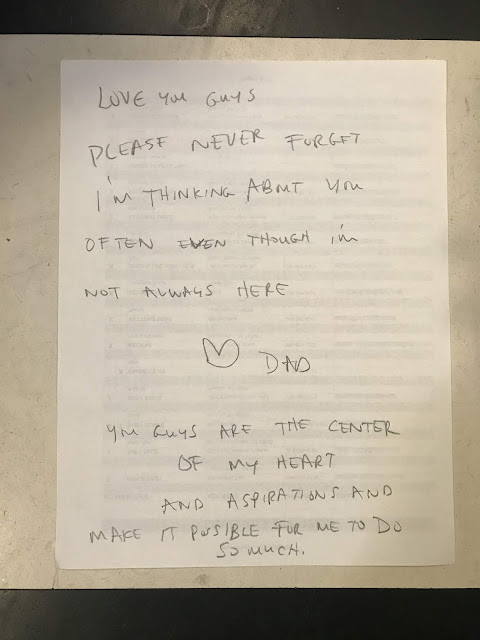 LOVE YOU GUYS
PLEASE NEVER FORGET
I'M THINKING ABOUT YOU
OFTEN EVEN THOUGH I'M
NOT ALWAYS HERE
♡ DAD
YOU GUYS ARE THE CENTER
OF MY HEART
AND ASPIRATIONS AND
MAKE IT POSSIBLE FOR ME TO DO
SO MUCH.